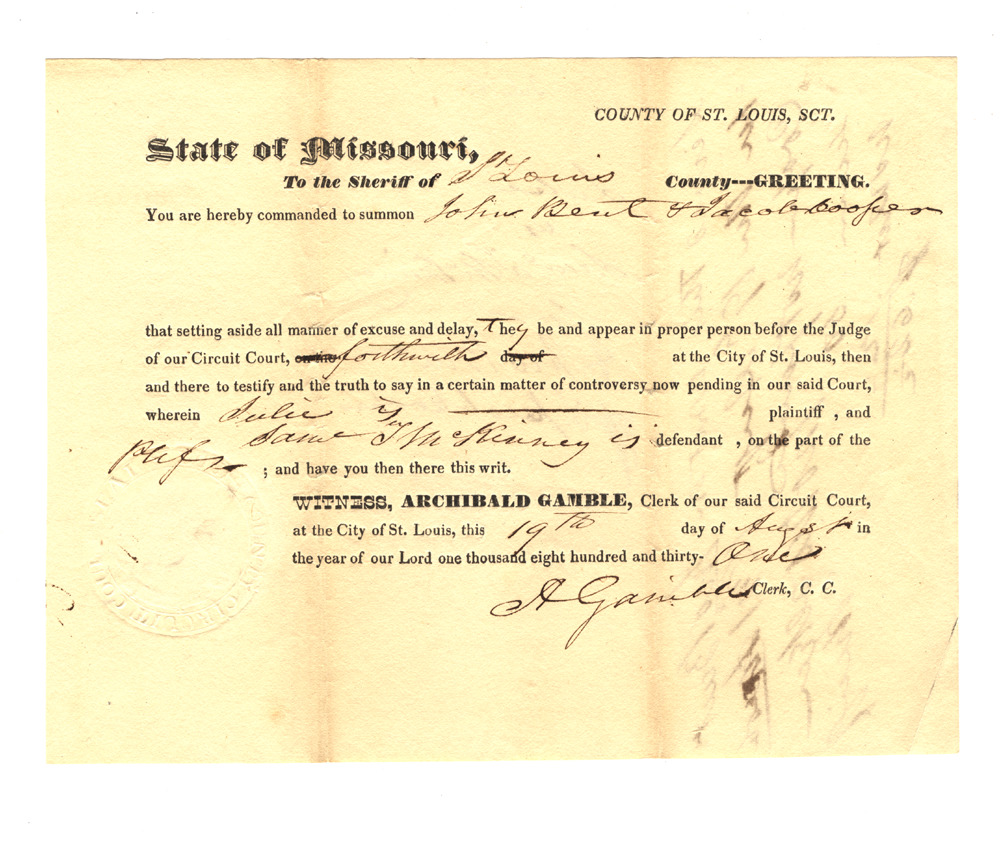 COUNTY OF ST. LOUIS, SCT.
State of Missouri,
To the Sheriff of St Louis County---GREETING.
You are hereby commanded to summon John Bent & Jacob Cooper
that setting aside all manner of excuse and delay, They be and appear in proper person before the Judge
of our Circuit Court, on the forthwith day of at the City of St. Louis, then
and there to testify and the truth to say in a certain matter of controversy now pending in our said Court,
wherein Julie plaintiff , and
Saml T McKinney is defendant , on the part of the
Plfs ; and have you then there this writ.
WITNESS, ARCHIBALD GAMBLE, Clerk of our said Circuit Court,
at the City of St. Louis, this 19th day of August in
the year of our Lord one thousand eight hundred and thirty- One
A Gamble Clerk, C. C.